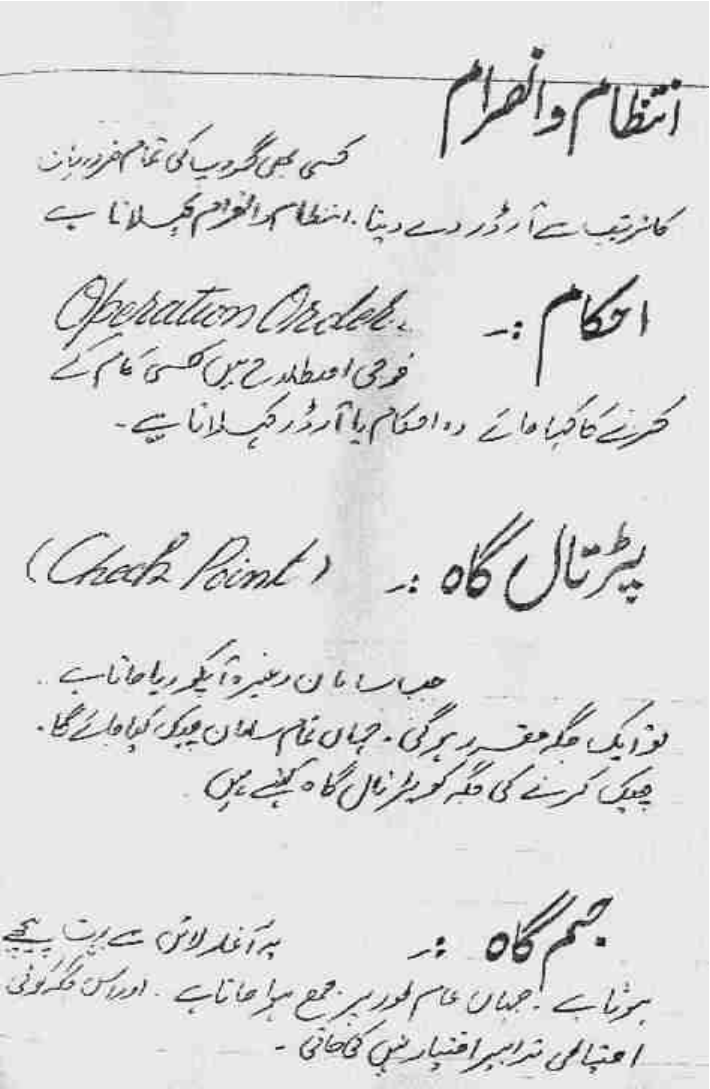 انتظام وانصرام
کسی بھی گروپ کی تمام ضروریات
کا ترتیب سے آرڈر دے دینا . انتظام وانصرام کہلاتا ہے
احکام :ـ Operation Order.
فوجی اصطلاح میں کسی کام کے
کرنے کا کہا جائے وہ احکام یا آرڈر کہلاتا ہے۔
پڑتال گاہ :ـ (Check Point)
جب سامان وغیرہ آپکو دیا جاتا ہے ..
تو ایک جگہ مقرر ہوگی . جہاں تمام سامان چیک کیا جائے گا .
چیک کرنے کی جگہ کو پڑتال گاہ کہتے ہیں
جمع گاہ :ـ یہ آغاز لائن سے بہت پیچھے
ہوتا ہے . جہاں عام طور پر جمع ہوا جاتا ہے . اور اس جگہ کوئی
احتیاطی تدابیر اختیار نہیں کی جاتی ۔